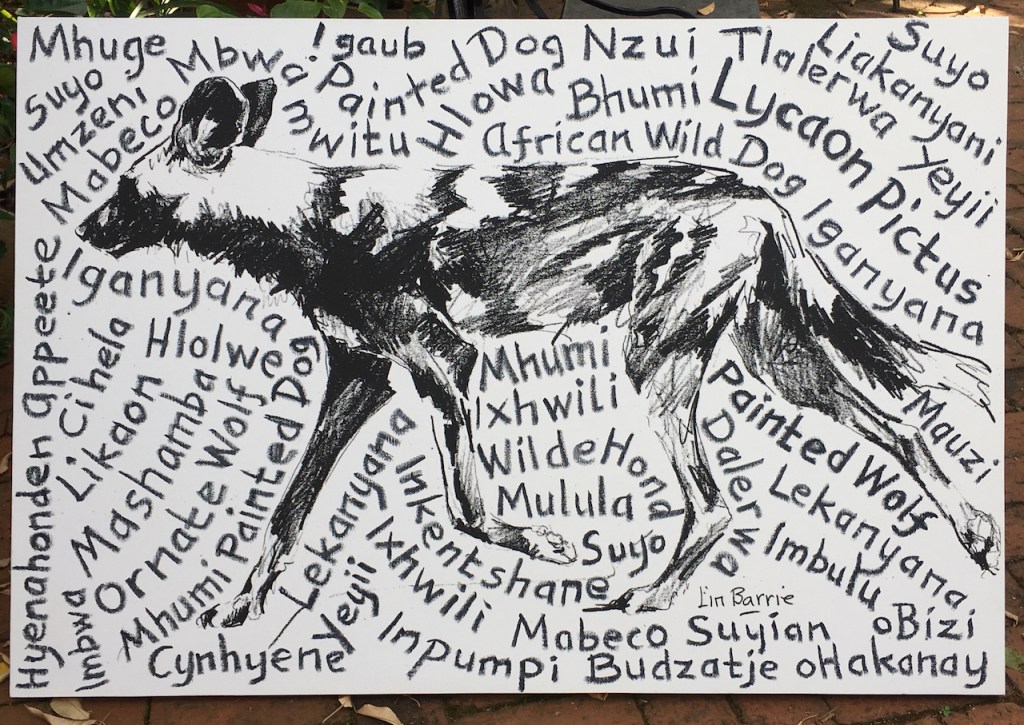 Mhuge
Suyo
Umzeni
Mabeco
Mbwa
mwitu
!gaub
Painted Dog
Hlowa
Nzui
Bhumi
African Wild Dog
Tlalerwa
Lycaon Pictus
Liakanyani
Suyo
Yeyii
Iganyana
Iganyana
Hyenahonden appeete
Cihela
Likaon
Hlolwe
Mashamba
Ornate Wolf
Mhumi
Painted Dog
Imbwa
Cynhyene
Lekanyana
Yeyii
Inkentshane
Ixhwili
Impumpi
Mhumi
Ixhwili
Wilde Hond
Mulula
Suyo
Mauzi
Painted Wolf
Dalerwa
Lekanyana
Imbulu
Lin Barrie
Mabeco
Suyian
oBizi
Budzatje
oHakanay